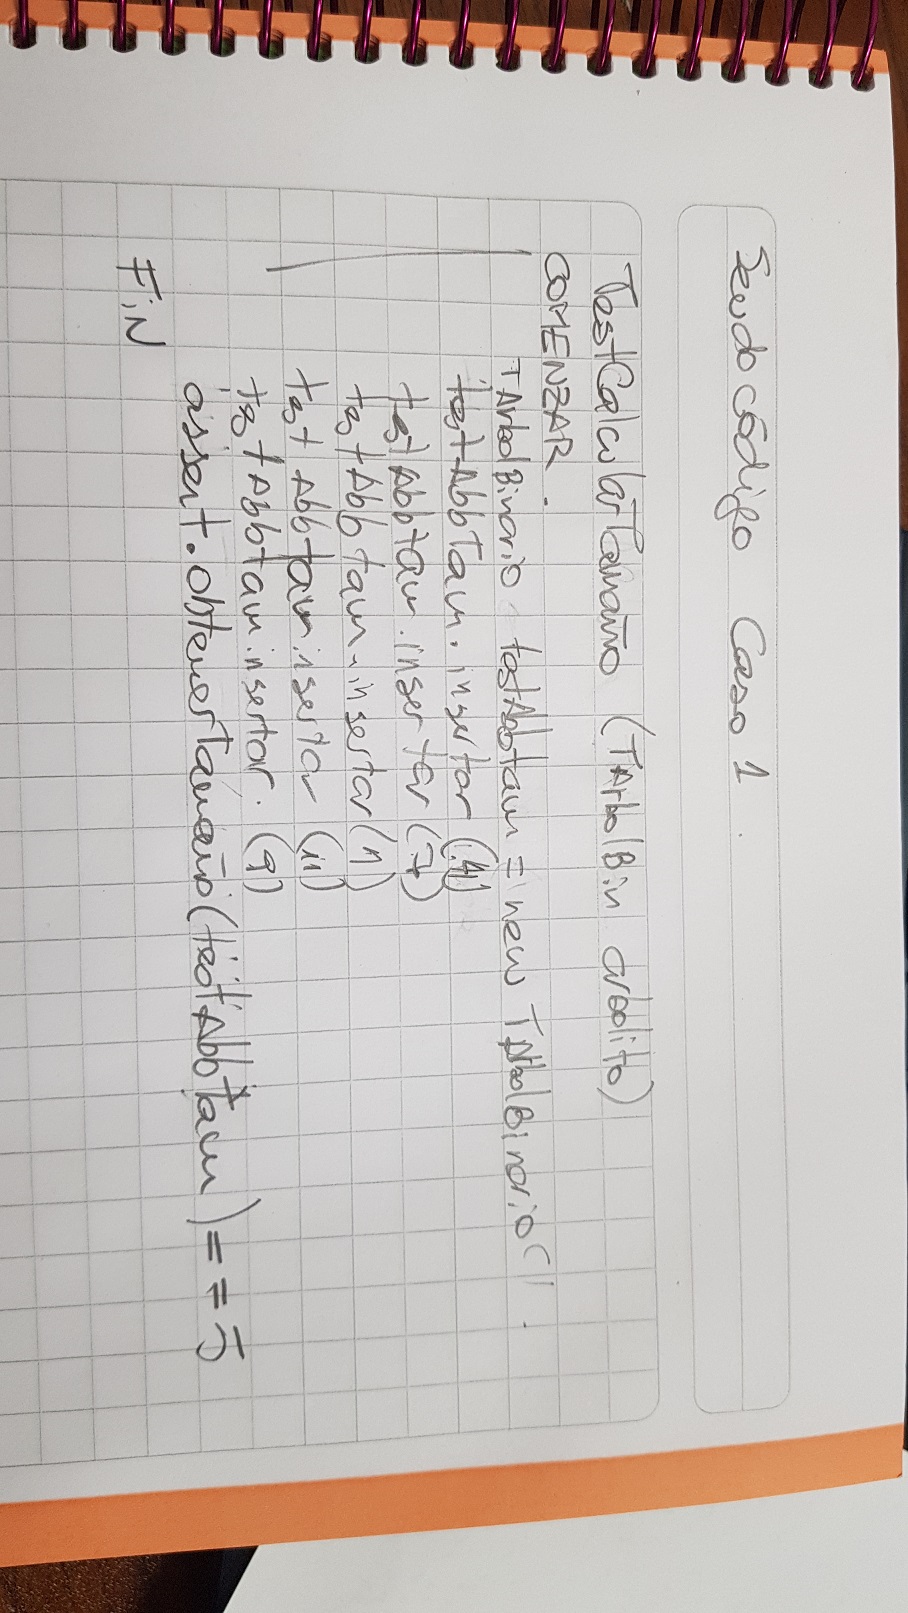 Seudocódigo Caso 1.
TestCalcularTamaño (TArbolBin arbolito)
COMENZAR.
TArbolBinario testAbbtam = new TArbolBinario().
testAbbTam.insertar (4)
testAbbtam.insertar (7)
testAbbtam.insertar (1)
testAbbtam.insertar (11)
testAbbtam.insertar. (9)
assert.obtenerTamaño(testAbbTam) == 5
FiN